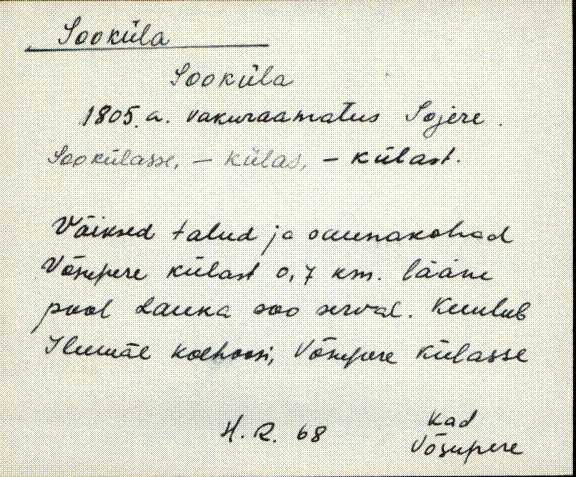 Sooküla
Sooküla
1805.a. vakuraamatus Sojere.
Sookülasse, – külas, – külast.
Väiksed talud ja saunakohad
Võsupere külast 0,7 km. lääne
pool Lauka soo serval. Kuulub
Ilumäe kolhoosi, Võsupere külasse
H. R. 68
Kad
Võsupere